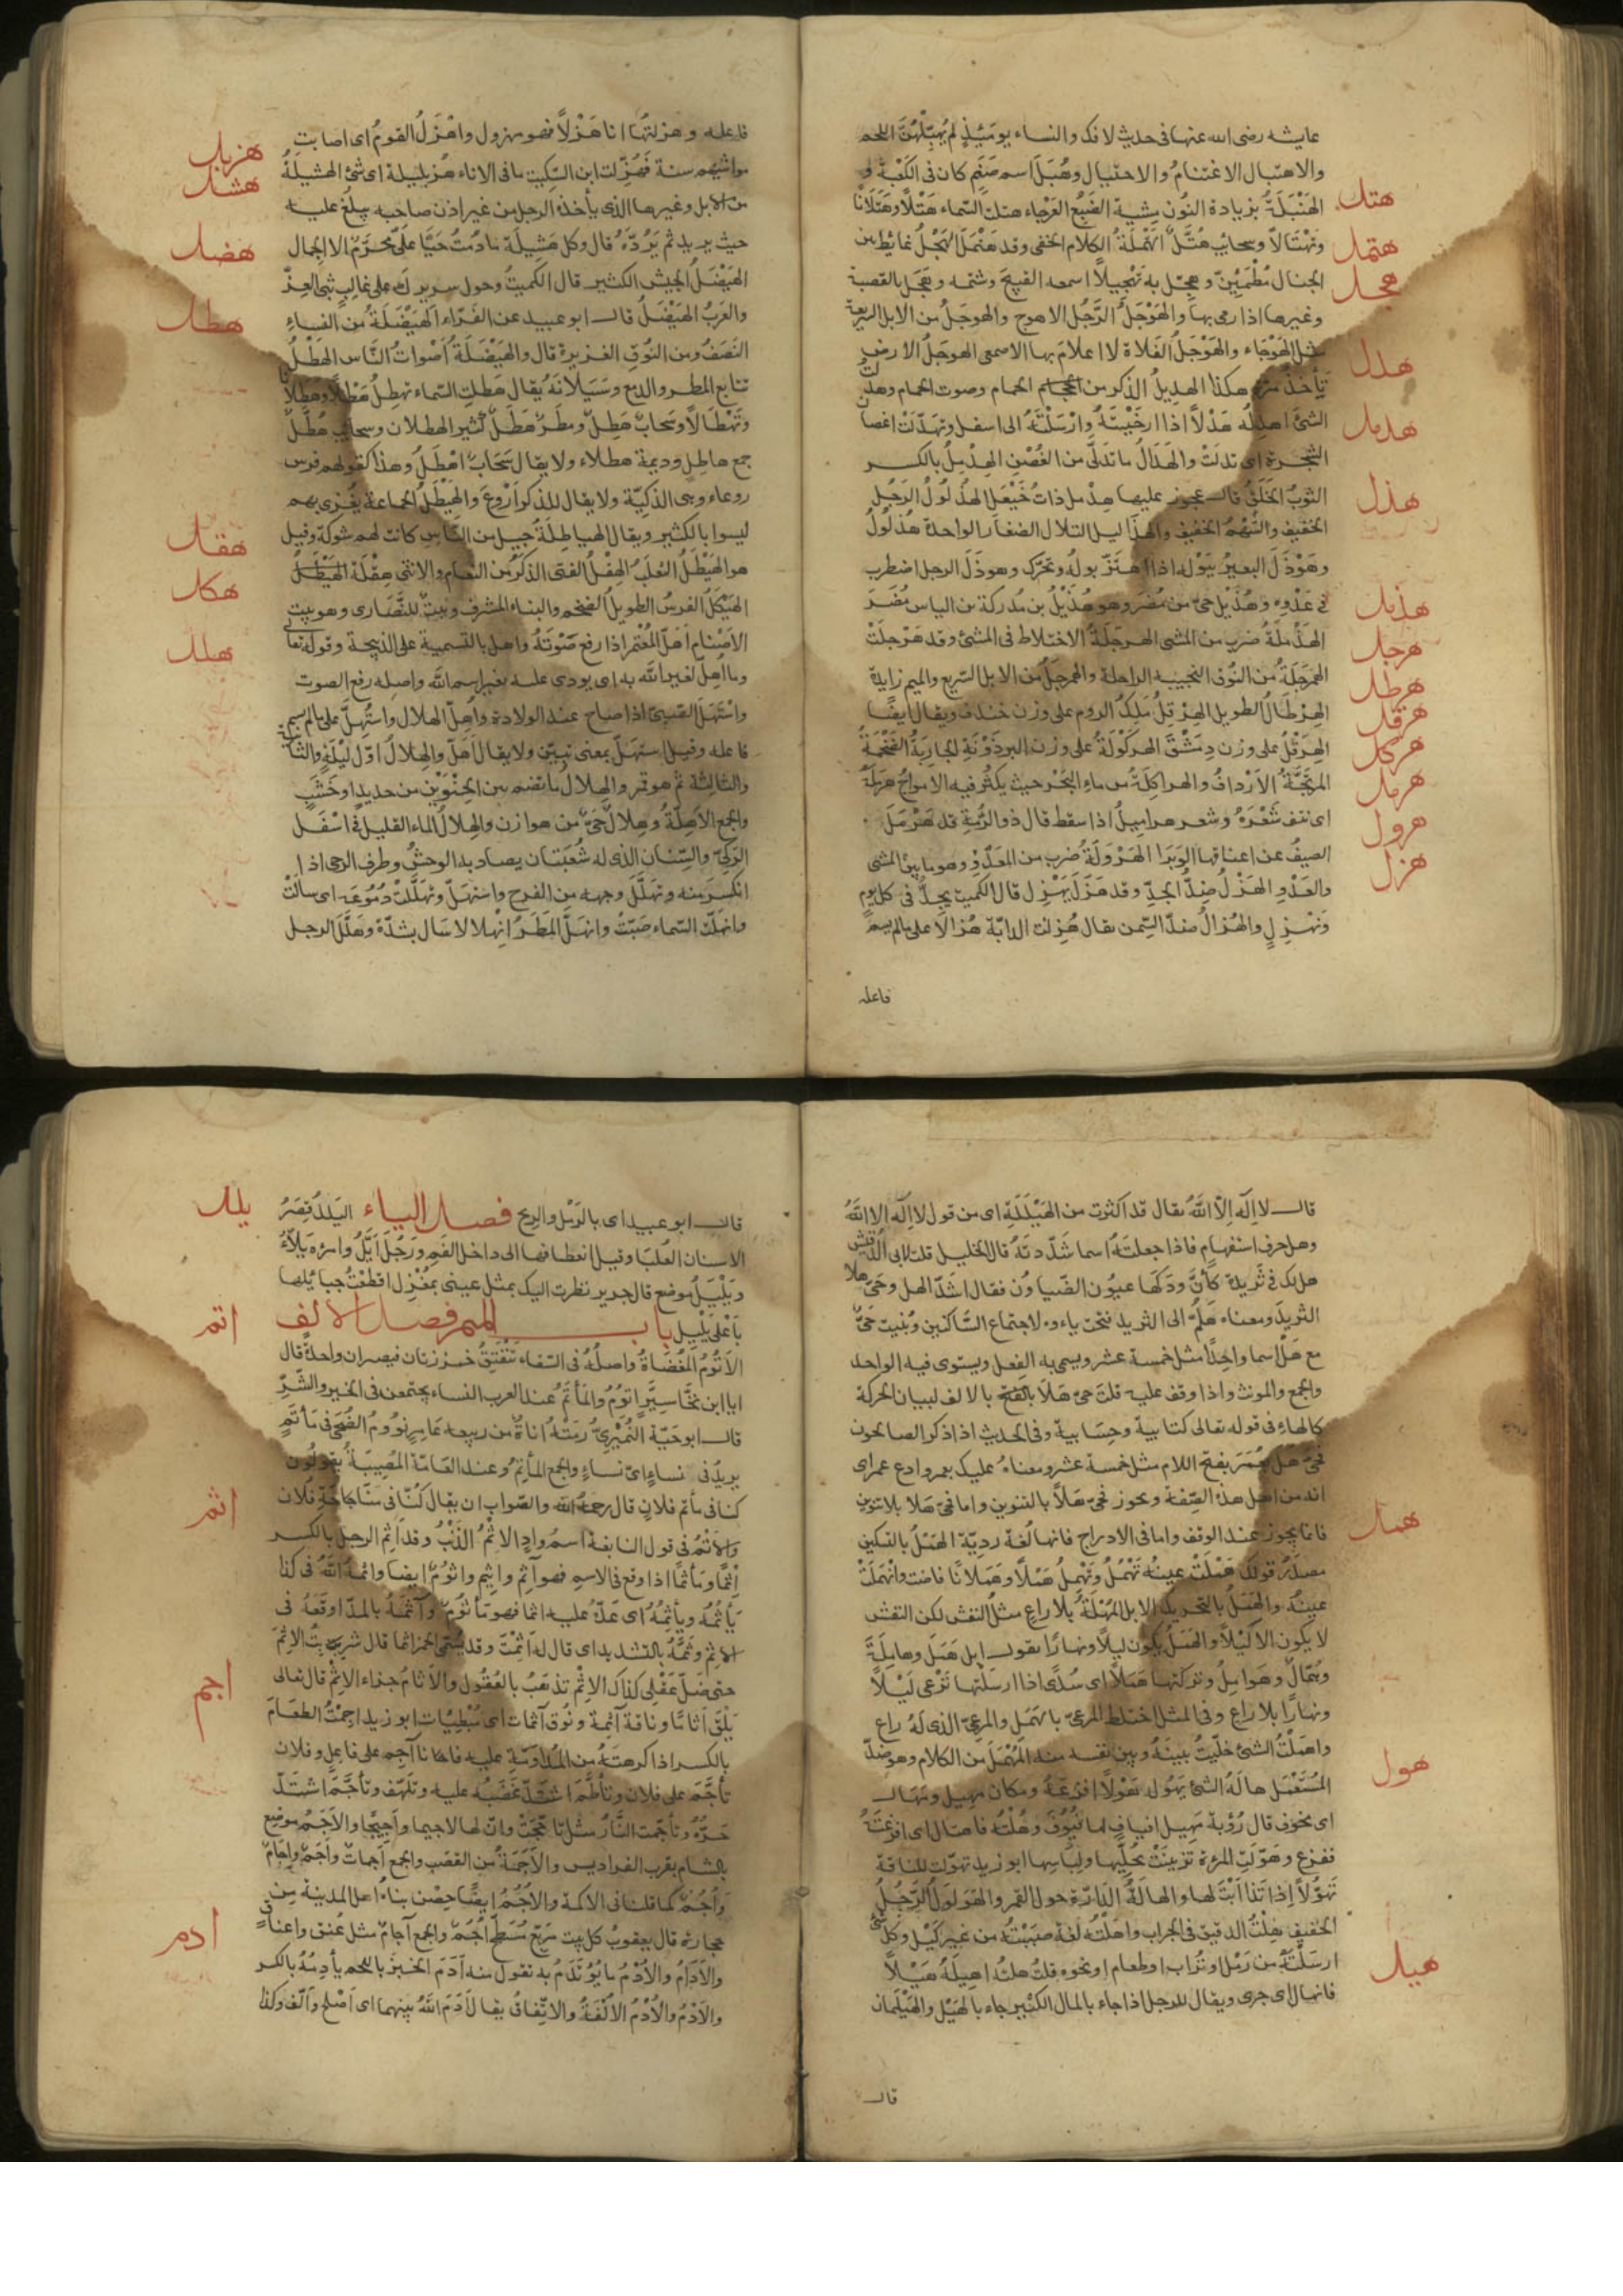 عايشه رضى الله عنها فى حديث الافك والنساء يومئذٍ لم يُهبّلهُنَّ اللحم
والاهتبال الاغتنام والاحتيال وهُبَل اسم صَنَمٍ كان فى الكَعْبة و
الهَنْبَلَةُ بزيادة النُون مِشية الضَبُع العَرْجاء هتلت السَّماء هَتْلًا وهَتَلانًا
هتل
وتَهْتالاً وسحائب هُتَّل الهَتْمَلَةُ الكلام الخفى وقد هَتْمَلَ الهَجْلُ غائِط بين
هتمل
الجبال مُطْمَئِنّ وهجّل به تَهْجيلاً اسمعه القبيح وشتمه وهجَل بالقصبة
هجل
وغيرها اذا رمى بها والهَوْجَلُ الرَّجُل الاهوج والهوجَلُ من الابل السريعة
مثل الهَوْجاء والهَوْجَلُ الفَلاة لا اعلامَ بها الاسمعى الهوجَلُ الارض
تَأخذُ مرّة هكذا الهديلُ الذكر من الحمام وصوت الحمام وهدلت
هدل
الشئ اهدِلُه هَدْلاً اذا ارخَيْتَهُ وارْسَلْتَهُ الى اسفل وتهدّلَتْ اغصان
الشجرة اى تدلَتْ والهَدَالُ ما تدَلّى من الغُصْنِ الهِدْمِلُ بالكسر
هدمل
الثوبُ الخَلَقُ قال عجوز عليها هِدْمل ذاتُ خَيْعَل الهُذْلُولُ الرَجُل
هذل
الخفيف والسَّهْمُ الخفيف والهذَاليل التلال الصّغار الواحدة هُذْلُولٌ
وهَوْذَلَ البعيرُ ببَوْله اذا اهتَزّ بولُه وتحرّك وهوذَلَ الرجل اضطرب
فى عَدْوِه وهُذَيْل حىّ من مُضَر وهو هُذَيْلُ بن مُدركة بن الياس مُضَرَ
هذيل
الهَذْمَلَةُ ضرب من المشى الهرجَلَةُ الاختلاط فى المشى وقد هَرْجلَتْ
هرجل
الهَمَرْجَلَةُ من النُوق النجيبة الراحلة والهمرجلُ من الابل السّريع والميم زايدة
الهِرْطالُ الطويل الهِرَقِلُ مَلِكُ الروم على وزن خندف ويقال ايضًا
هرطل
هرقل
الهِرَقْلُ على وزن دِمَشْقَ الهِرَكْوْلَةُ على وزن البِرذَوْنَةِ الجاريَةُ الضَخْمَةُ
هركل
المرتجَّةُ الاَرْدافُ والهراكِلَةُ من ماءِ البَحْر حيث يكثُر فيه الامواجُ هَرْمَلَهُ
هرمل
اى نتف شَعْرَهُ وشعر هراميلُ اذا سقط قال ذوالرُّمَّةِ قد هَرْمَلَ
الصيفُ عن اعناقها الوَبَرَا الهَرْوَلَةُ ضرب من العَدْوِ وهو ما بين المشى
هرول
والعَدْوِ الهَزْلُ ضِدُّ الجِدّ وقد هَزَلَ يَهْزِل قال الكميت يجدُّ فى كل يومٍ
هزل
وَنهْزِلِ والهُزالُ ضدّ السِّمن يقال هُزِلت الدابّة هُزالاً على مالم يسم
فاعله
فاعله وهزلتُها انا هَزْلاً فهو مهزول واهْزَلَ القومُ اى اصابت
مواشيهم سنة فهُزِّلت ابن السّكيت ما فى الاناء هُزَيلِيلة اى شئ الهشيلَةُ
هزبل
هشل
من الابل وغيرها الذى يأخذه الرجل من غير اذن صاحبه يبلغ عليه
حيث يريد ثم يَرُدّهُ قال وكل هَشِيلَة مادُمتُ حَيًّا علَىّ مُحَرَّمٌ الا الجمال
هضل
الهَيْضَلُ الجيش الكثير قال الكميتُ وحول سريرك من غالبٍ ثبى العِزّ
والعَرَبُ الهَيْضَلُ قال ابو عبيد عن الفَرّاء الهَيْضَلَةُ من النساءِ
هطل
النَصَفُ ومن النُوقِ الغزيرة قال والهَيْضَلَةُ اَصْواتُ النَّاس الهَطْلُ
تتابع المطر والدمع وسَيَلانَهُ يقال هَطلت السّماء تهطِلُ هَطْلاً وهَطلانًا
وتَهْطَالاً وسحابٌ هَطِلٌ ومطَرٌ هَطَلٌ كثير الهطلان وسحائب هُطَّلٌ
جمع هاطل وديمة هطلاء ولا يقال سَحَابٌ اهْطَلُ وهذا كقولهم فرس
روعاء وهى الذكيّة ولا يقال للذكر اَرْوع والهَيْطَلُ الجماعة يُغزى بهم
ليسوا بالكثير ويقال الهياطِلَةُ جيل من النّاس كانت لهم شوكة وقيل
هقل
هو الهَيْطَلُ الثعلب الهِقْلُ الفتى الذكر من النعام والانثى هِقْلَة
هكل
الهَيْكَلُ الفرسُ الطويلُ الضخم والبناء المشرف وبيتٌ للنَّصَارى وهو بيت
الاَصْنام اَهَلّ المُعْتمر اذا رفع صَوْتَهُ واهل بالتسمية على الذبيحة وقوله تعالى
هلل
وما اُهِلَ لغير الله به اى نودى عليه بغير اسم الله واصله رفع الصوت
واسْتَهَلّ الصّبىّ اذا صاح عند الولادة واُهِلّ الهلال واستُهِلّ على مالم يسم
فاعله وقيل استهلّ بمعنى تبيّن ولا يقال اهَلّ والهِلالُ اوّل ليْلَةٍ والثانية
والثالثة ثم هو قمر والهلالُ ما يضم بين الحِنْوَيْنِ من حديدٍ او خَشَبٍ
والجمع الاَهِلّةُ وهِلالٌ حَىٌّ من هوازن والهِلالُ الماء القليل فى اسْفَل
الرّكيّ والسّنان الذى له شُعبَتان يصاد به الوحشُ وطرف الرحى اذا
انكسر منه وتهلّلَ وجهه من الفرح واستهلّ وتهلَّلَتْ دُمُوعُه اى سالَتْ
وانهلّت السّماء صَبّتْ وانهَلَّ المَطَرُ اِنْهِلالا سَال بشدّة وهَلَّلَ الرجل
قال لا اِلَه اِلاّ اللهُ يقال قد اكثرت من الهَيْلَلَةِ اى من قول لا اله الا اللهُ
وهل حرف استفهام فاذا جعلتَه اسما شدّدته قال الخليل قلت لابى الدُّقيش
هل لك فى ثَريدة كأنَّ ودَكَها عيُون الضّياوُن فقال اشدّ الهل وحَىّ هلا
الثريدَ ومعناه هَلُمّ الى الثريد فتحت ياءه لاجتماع السَّاكنين وبُنيت حَىّ
مع هَلْ اسما واحِدًا مثل خمسة عشر ويسمى به الفِعل ويستوى فيه الواحد
والجمع والمونث واذا وقف عليه قلتَ حىّ هَلَا بالفتح بالالف لبيان الحركة
كالهاءِ فى قوله تعالى كتابية وحِسَابية وفى الحديث اذا ذكر الصالحون
فحىّ هَلَ بعُمَرَ بفتح اللام مثل خمسة عشر ومعناه عليك بعمر وادع عمر اى
انه من اهل هذه الصِّفة ويجوز فحىّ هَلاً بالتنوين واما فحىّ هَلا بلا تنوين
فانما يجوز عند الوقف واما فى الادراج فانها لُغة رديّة الهَمْلُ بالتسكين
همل
مصدَرُ قولك هَمَلَتْ عينُه تَهْمُلُ وتَهْمِلُ هَمْلاً وهَمَلانًا فاضت وانْهَمَلَتْ
عينُه والهَمَلُ بالتحريك الابل المُهْمَلَةُ بلا راعٍ مثلُ النفش لكن النفش
لا يكون الا لَيْلاً والهَمَلُ يكون ليلاً ونهارًا يقول ابل هَمَلَ وهامِلَةٌ
وهُمّالٌ وهَوامِلُ وتركتها هَمَلاً اى سُدًى اذا ارسَلْتها تَرْعى لَيْلاً
ونهارًا بلا راعٍ وفى المثل اختلط المرعىّ بالهَمَل والمرعىّ الذى لَهُ راع
واهمَلْتُ الشئ خلّيتُ بينَهُ وبين نفسه المُهْمَلُ من الكلام وهو ضِدّ
المُسْتَعْمَل هالَهُ الشئ يهُوله هَوْلاً افزعَهُ ومكان مَهِيل ومهال
هول
اى مخوف قال رُؤبة مَهِيل افيافٍ لها فُيُوفٌ وهُلْتُه فاهتال اى افزعْتُهُ
ففزع وهَوّلَتِ المرءة تزينَتْ بحُلِيّها ولِبَاسِها ابو زيد تهوّلت للناقة
تَهوُّلاً اِذا تَذَاَّبْتَ لها والهالَةُ الدّارَة حول القمر والهَوَلْوَلُ الرَّجُلُ
الخفيف هِلْتُ الدقيق فى الجراب واهَلْتُه لغة صَبَبْتُه من غير كَيْل وكل شئ
ارسَلْتَهُ من رَمْل او تُراب او طعام او نحوه قلتَ هِلْتُه اهِيلُه هَيْلاً
هيل
فانهال اى جرى ويقال للرجل اذا جاء بالمال الكثير جاء بالهَيْل والهَيْلَمان
قال
قال ابو عبيد اى بالرَمْل والريح فصل الياء اليَلَلُ قِصَرُ
يلل
الاسنان العُليَا وقيل انعطافها الى داخل الفم ورَجُل اَيَلُّ وامرءة يَلاّءُ
ويَلْيَلُ موضع قال جرير نظرت اليك بمثل عينى مُغْزِل اقطعْتُ حبائلها
بأعلى يَلْيَل باب الميم فصل الالف
اتم
الاَتُومُ المُفْضَاةُ واصلُه فى السّقاء تَنْفَتِقُ خُرزتان فيصيران واحدةً قال
ايا ابن نخّاسيّةٍ اتومٍ والمأتَمُ عند العرب النساء يجتمعن فى الخير والشَرِّ
قال ابو حَيّة النُمَيْرىُّ رمَتْهُ اناةٌ من ربيعة عامِرٍ نؤومُ الضُحَى فى مأتَمٍ
يريدُ فى نساءٍ اىّ نساءٍ والجمع المآتِمُ وعند العَامّة المُصِيبَةُ يقولون
كنا فى مأتم فلانٍ قال رحمه الله والصّواب ان يقال كُنّا فى مَنَاحَةِ فُلان
اثم
والاَتْمُ فى قول النابغة اسمُ وادٍ الاِثْمُ الذَنْبُ وقد اَثِم الرجل بالكسر
اِثْمًا ومَأثَمًا اذا وقع فى الاسم فهو آثم واثيم واثُومٌ ايضا واثمهُ اللهُ فى كذا
يَأثُمُه ويأثِمُهُ اى عَدّه عليه اثما فهو مأثُومٌ وآثَمَهُ بالمدّ اوقَعَهُ فى
الاثم وثَمَّهُ بالتشديد اى قال له اَثِمْتَ وقد يُسمّى الخمر اثما قال شربتُ الاِثْمَ
حتى ضَلّ عَقْلى كذاك الاِثْمُ تذهَبُ بالعُقُول والاَثَامُ جزاء الاِثْم قال تعالى
اجم
يَلْقَ اَثامًا وناقة آثِمة ونُوق آثمات اى مُبْطِيّات ابو زيد اجِمْتُ الطعَامَ
بالكسر اذا كرهتَهُ من المُداوَمَةِ عليه فانا آجِم على فاعِل وفلان
تأجَّمَ على فلان وتأطّمَ اشتدّ غَضَبُه عليه وتلهّف وتأجَّمَ اشْتَدّ
حَرّهُ وتأجّمت النَّارُ مثل تاجّجَتْ وانّ لها لاجيما واَجِيجًا والاَجَمُ موضِع
بالشام بقرب الفراديس والاَجَمَةُ من القصَب والجمع آجَماتٌ واَجَمٌ واِجامٌ
واُجُمٌ كما قلنا فى الاكمة والاُجُمُ ايضًا حِصْن بناه اهل المدينة مِن
حجارة قال يعقوبُ كل بيت مربّع مُسَطّح اُجُمٌ والجمع آجامٌ مثل عُنق واعناقٍ
ادم
والاَدَامُ والاُدْمُ ما يُؤتَدَمُ به نقول منه اَدَمَ الخبزَ باللحم يأدِمُهُ بالكسر
والاَدْمُ والاُدْمُ الاُلْفَةُ والاتِّفاقُ يقال اَدَمَ اللهُ بينهما اى اَصْلح واَلّف وكذا